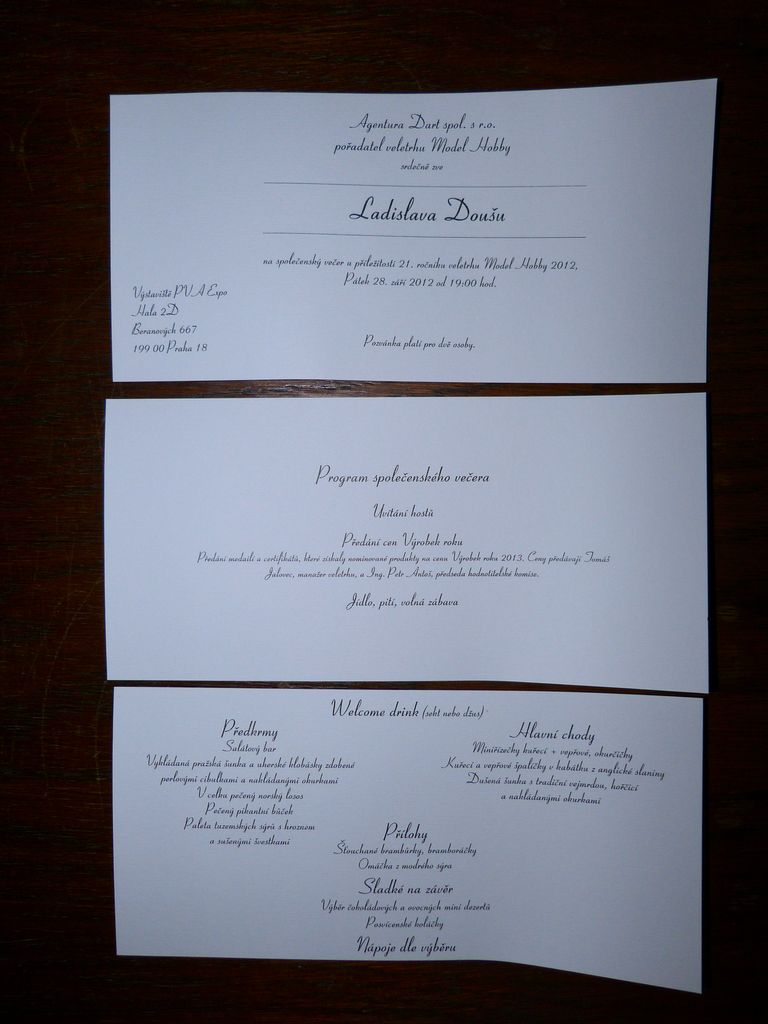 Agentura Dart spol. s r.o.
pořadatel veletrhu Model Hobby
srdečně zve
Ladislava Doušu
na společenský večer u příležitosti 21. ročníku veletrhu Model Hobby 2012,
Pátek 28. září 2012 od 19:00 hod.
Výstaviště PVA Expo
Hala 2D
Beranových 667
199 00 Praha 18
Pozvánka platí pro dvě osoby.
Program společenského večera
Uvítání hostů
Předání cen Výrobek roku
Předání medailí a certifikátů, které získaly nominované produkty na cenu Výrobek roku 2013. Ceny předávají Tomáš
Jalovec, manažer veletrhu, a Ing. Petr Antoš, předseda hodnotitelské komise.
Jídlo, pití, volná zábava
Welcome drink (sekt nebo džus)
Předkrmy
Salátový bar
Vykládaná pražská šunka a uherské klobásky zdobené
perlovými cibulkami a nakládanými okurkami
V celku pečený norský losos
Pečený pikantní bůček
Paleta tuzemských sýrů s hroznem
a sušenými švestkami
Hlavní chody
Miniřízečky kuřecí + vepřové, okurčičky
Kuřecí a vepřové špalíčky v kabátku z anglické slaniny
Dušená šunka s tradiční vejmrdou, hořčicí
a nakládanými okurkami
Přílohy
Šťouchané brambůrky, bramboráčky
Omáčka z modrého sýra
Sladké na závěr
Výběr čokoládových a ovocných mini dezertů
Posvícenské koláčky
Nápoje dle výběru